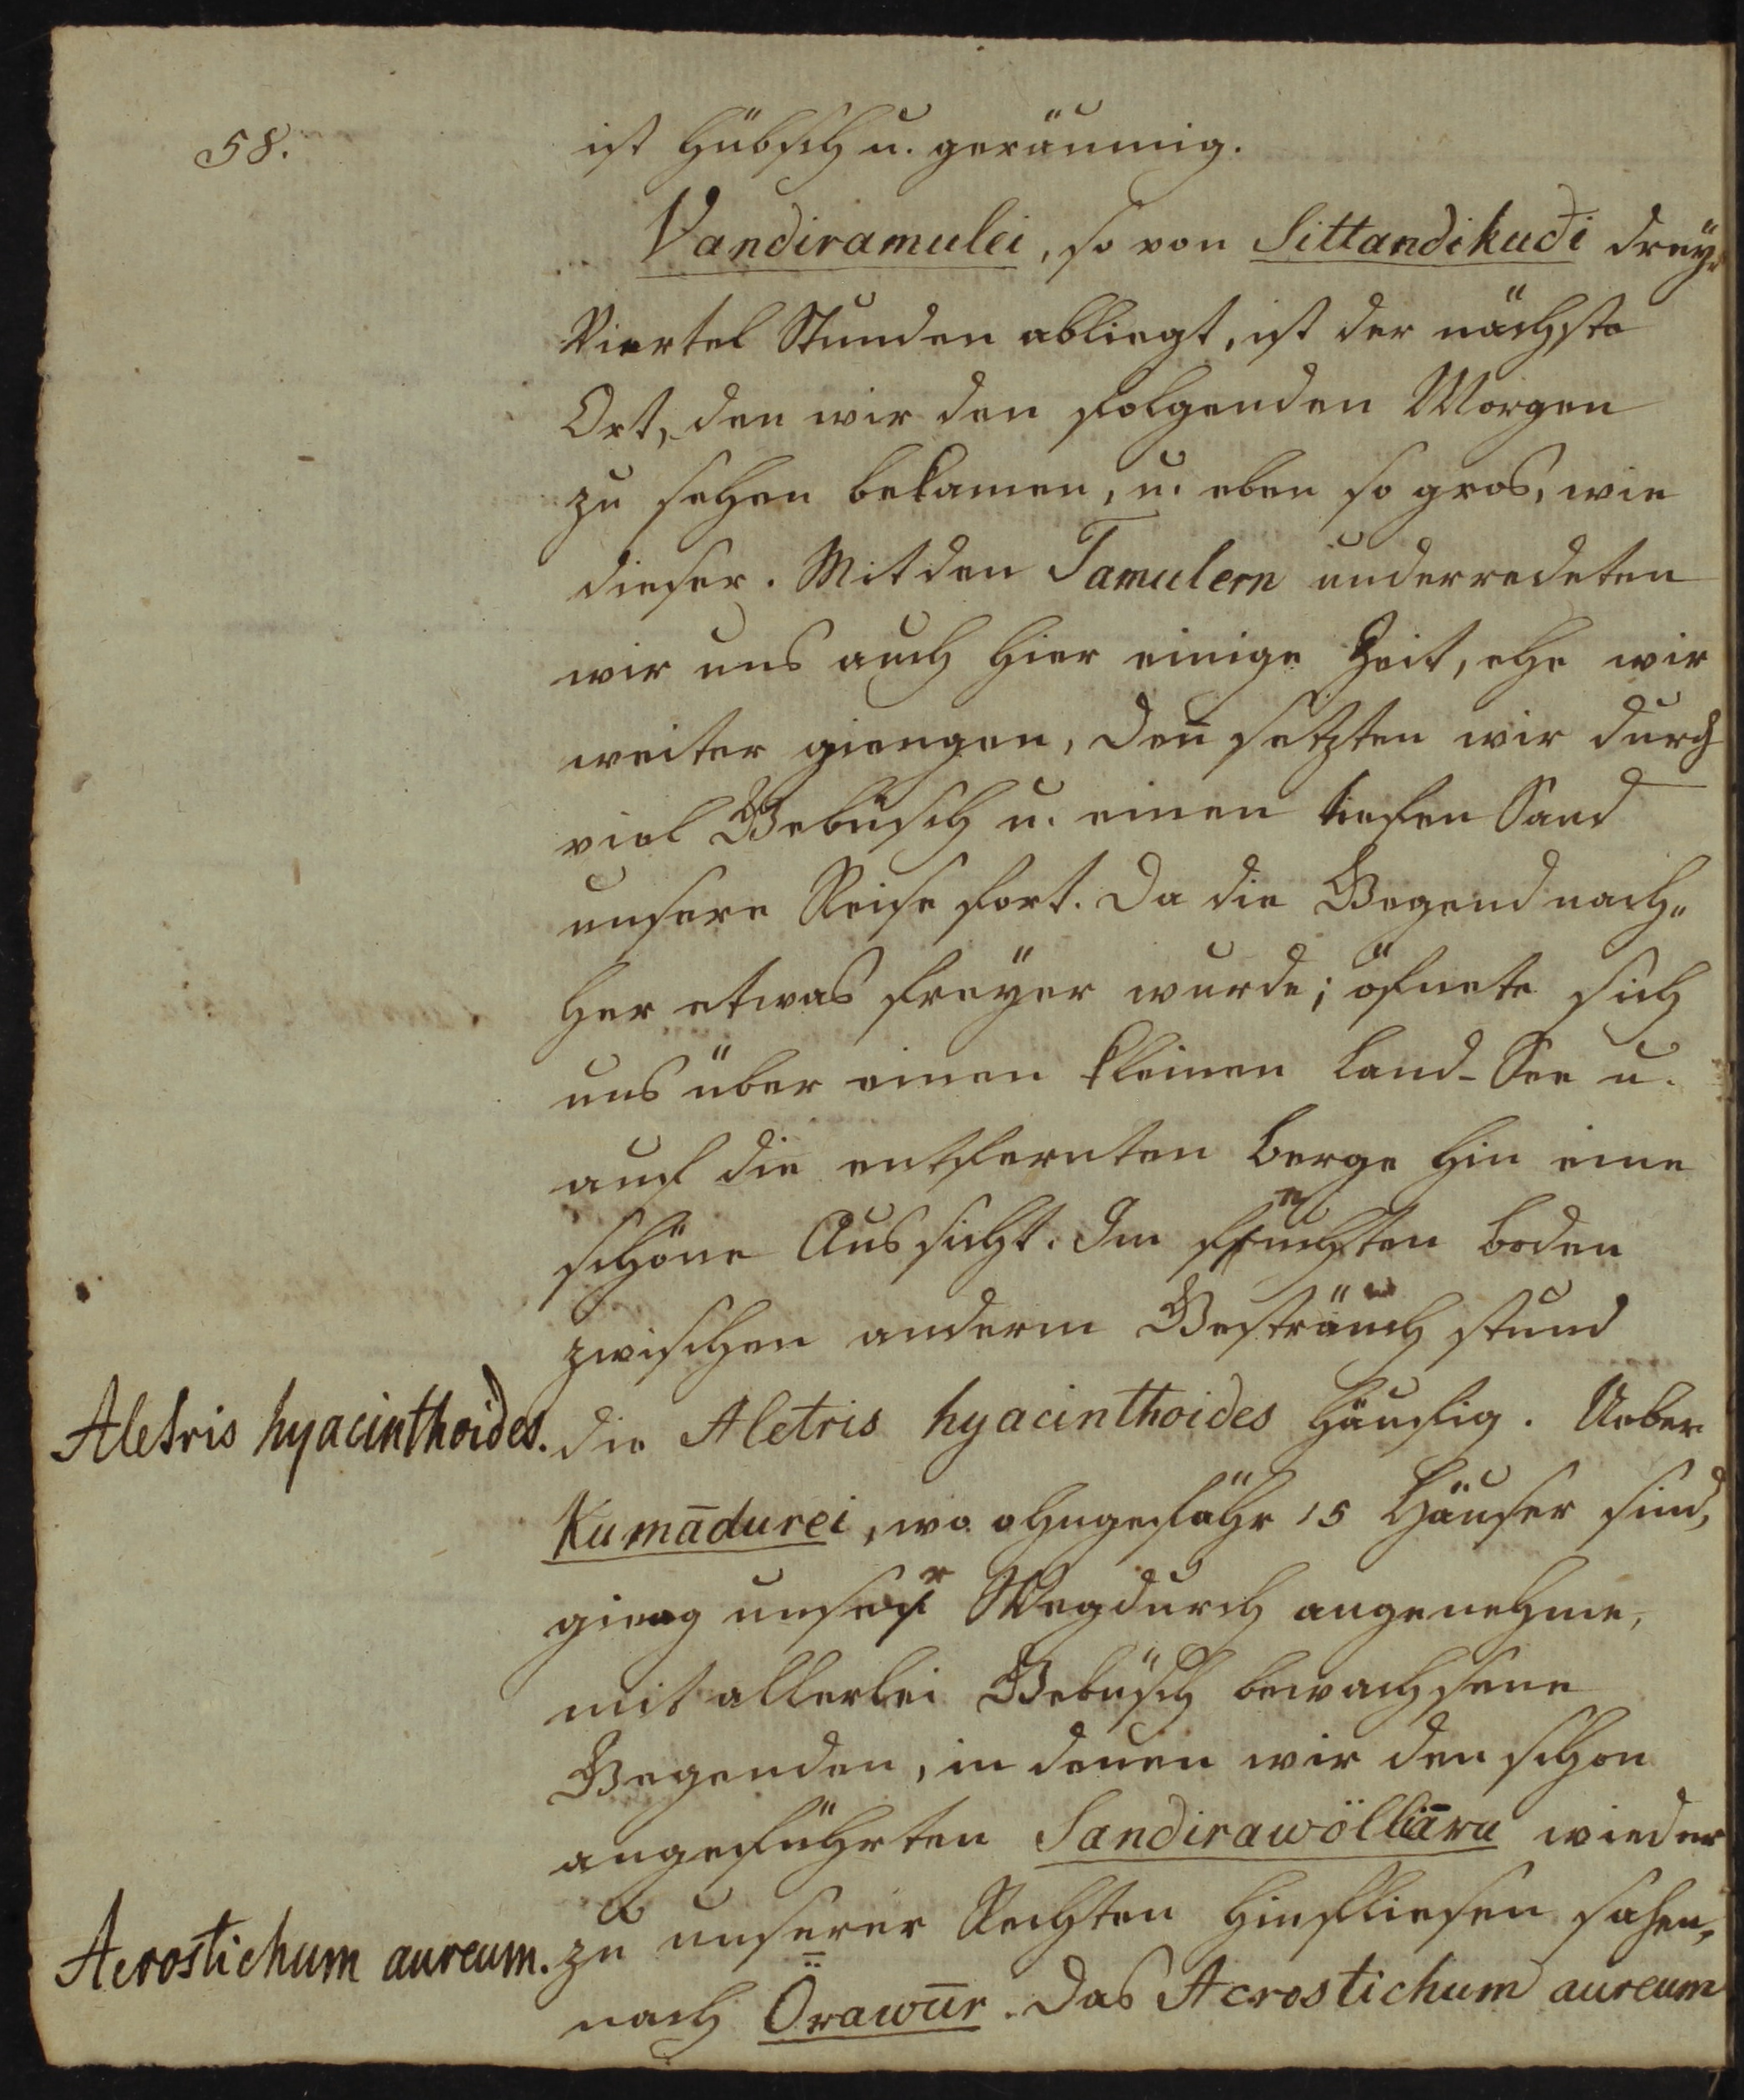 58.
ist hübsch u. geräumig.
Vandiramulei, so von Sittandikudi drey-
Viertel Stunden abliegt, ist der nächste
Ort, den wir den folgenden Morgen
zu sehen bekamen, u. eben so gros, wie
dieser. Mit den Tamulern underredeten
wir uns auch hier einige Zeit, ehe wir
weiter giengen, deñ setzten wir durch
viel Gebüsch u. einen tiefen Sand
unsere Reise fort. Da die Gegend nach-
her etwas freyer wurde; öfnete sich
uns über einen kleinen Land-See u.
auf die entfernten Berge hin eine
schöne Aussicht. Im feuchten Boden
zwischen anderm Gesträuch stund
Aletris hyacinthoides. die Aletris hyacinthoides häufig. Ueber
Kumādurei, wo ohngefähr 15 Häuser sind,
gieng unser Weg durch angenehme,
mit allerlei Gebüsch bewachsene
Gegenden, in denen wir den schon
angeführten Sandirawölliāru wieder
zu unserer Rechten hinfliesen sahen,
Acrostichum aureum. nach Örawūr. Das Acrostichum aureum